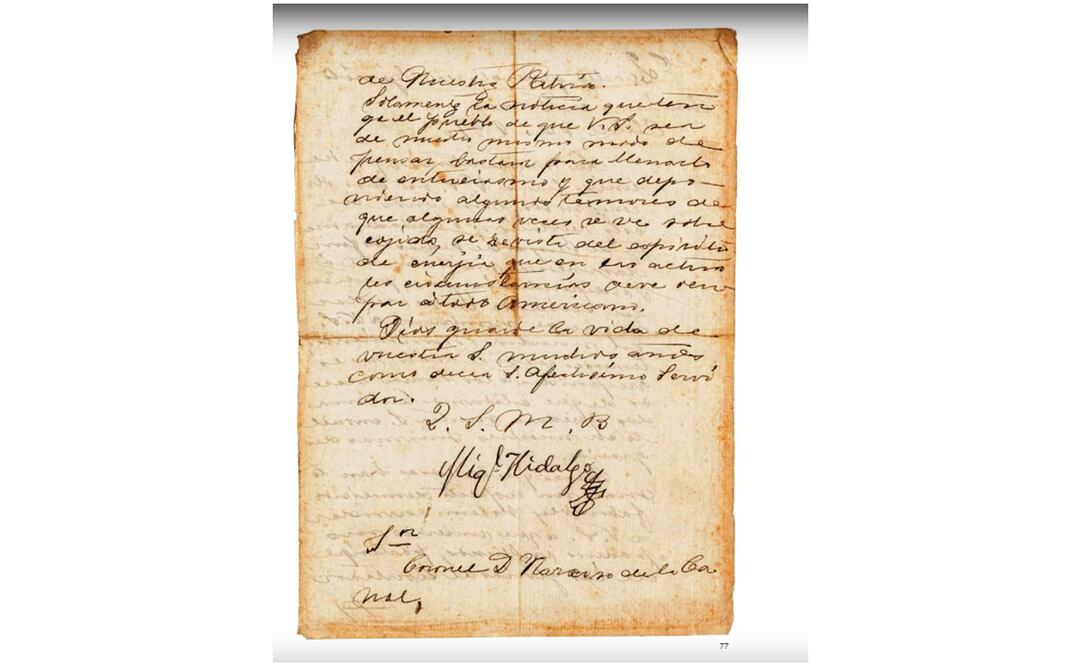 de Nuestra Patria.
Solamente la noticia que ten
ga el pueblo de que V.S. sea
de nuestro mismo modo de
pensar bastara para llenarlo
de entuciasmo y que depo-
niendo algunos temores de
que algunas veces se ve sobre
cojido, se revista del espiritu
de enerjia que en las actua
les circunstancias deve ocu
par á todo Americano.
Dios guarde la vida de
vuestra S. muchos años
como decea S. Afectisimo Servi
dor.
Q. S. M. B
Migl. Hidalgo
Sor
Coronel D Narciso de la Ca
nal,
77